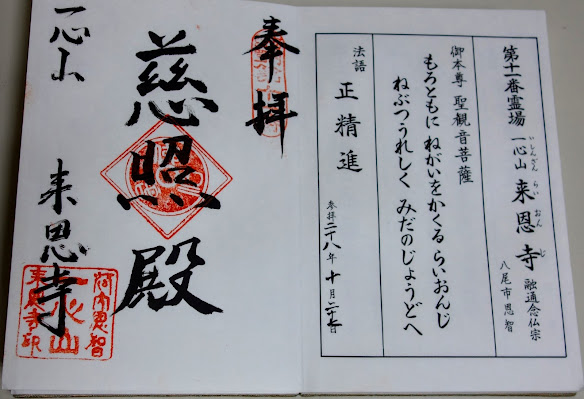 第十一番霊場
一心山 来恩寺 融通念仏宗
いっしんざん らいおんじ
八尾市恩智
御本尊 聖観音菩薩
もろともに ねがいをかくる らいおんじ
ねぶつうれしく みだのじょうどへ
法語 正精進
参拝二十八年十月二十七日
奉拝
慈照殿
一心山 来恩寺
河内恩智
一心山
来恩寺印